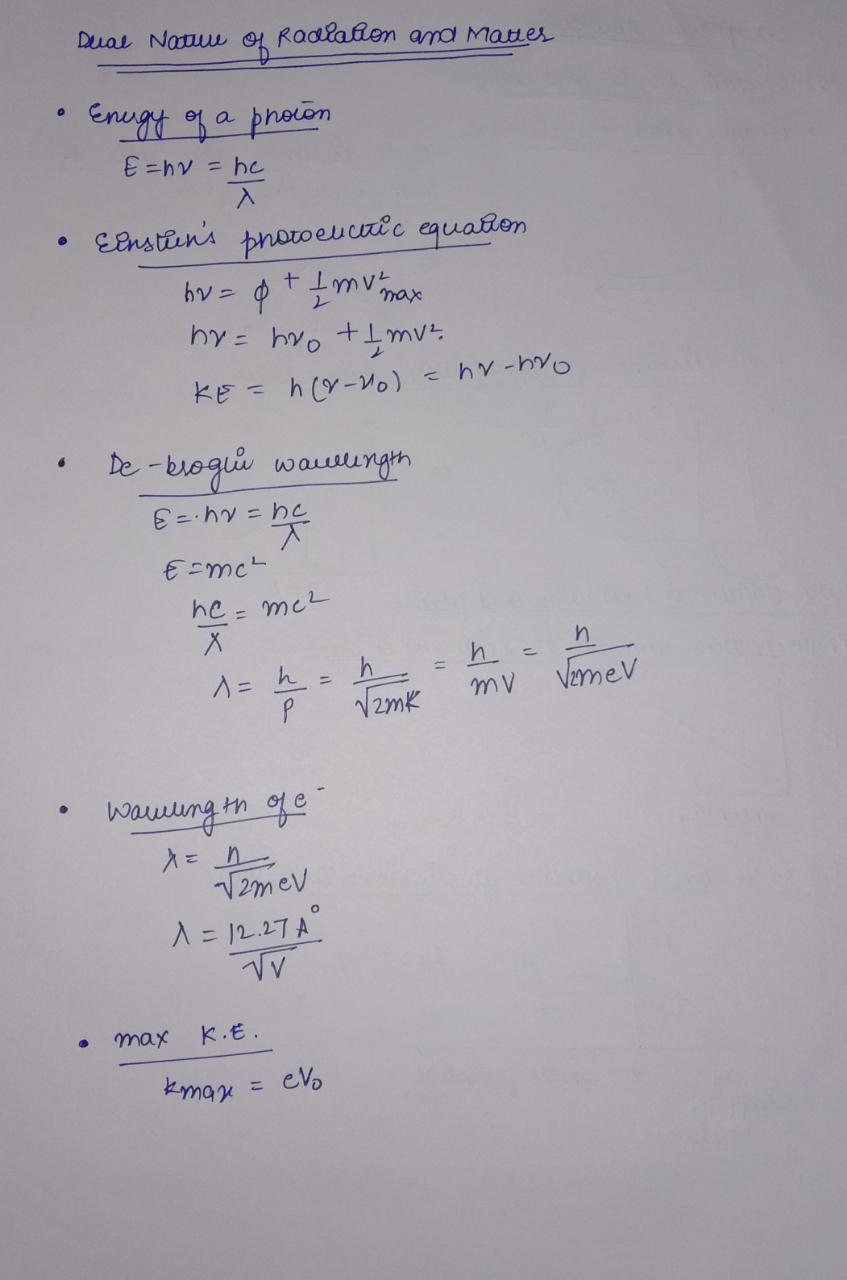 Dual Nature of Radiation and Matter
• Energy of a photon
E = hν = hc/λ
• Einstein's photoelectric equation
hν = φ + 1/2 mv²max
hν = hν₀ + 1/2 mv².
KE = h(ν-ν₀) = hν - hν₀
• De-broglie wavelength
E = hν = hc/λ
E = mc²
hc/λ = mc²
λ = h/p = h/√2mK = h/mV = h/√2meV
• Wavelength of e⁻
λ = h/√2meV
λ = 12.27 A°/√V
• max K.E.
Kmax = eV₀